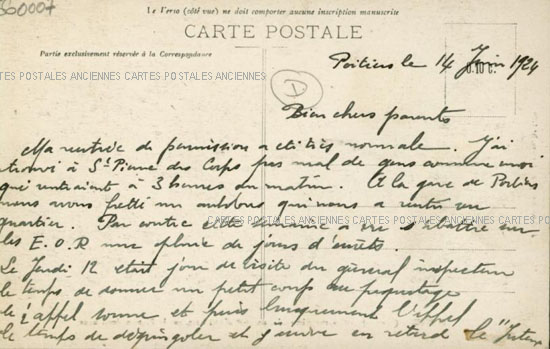 360007
Le Verso (côté vue) ne doit comporter aucune inscription manuscrite
CARTE POSTALE
Partie exclusivement réservée à la Correspondance
D
0.10 c.
Poitiers le 14 Juin 1924
CARTES POSTALES ANCIENNES CARTES POSTALES ANCIENNES
Bien chers parents
Ma rentrée de permission a été très normale. J'ai
trouvé à St Pierre des Corps pas mal de gens comme moi
qui rentraient à 3 heures du matin. A la gare de Poitiers
nous avons fretté un autobus qui nous a rentré au
quartier. Par contre cette semaine a vu s'abattre sur
CARTES POSTALES ANCIENNES CARTES POSTALES ANCIENNES CARTES POSTALES
les E.O.R une pluie de jours d'arrêts.
Le Jeudi 12 était jour de visite du général inspecteur
le temps de donner un petit coup au paquetage
le 1er appel sonne et puis l'appel
le temps de dégringoler et j'arrive en retard le